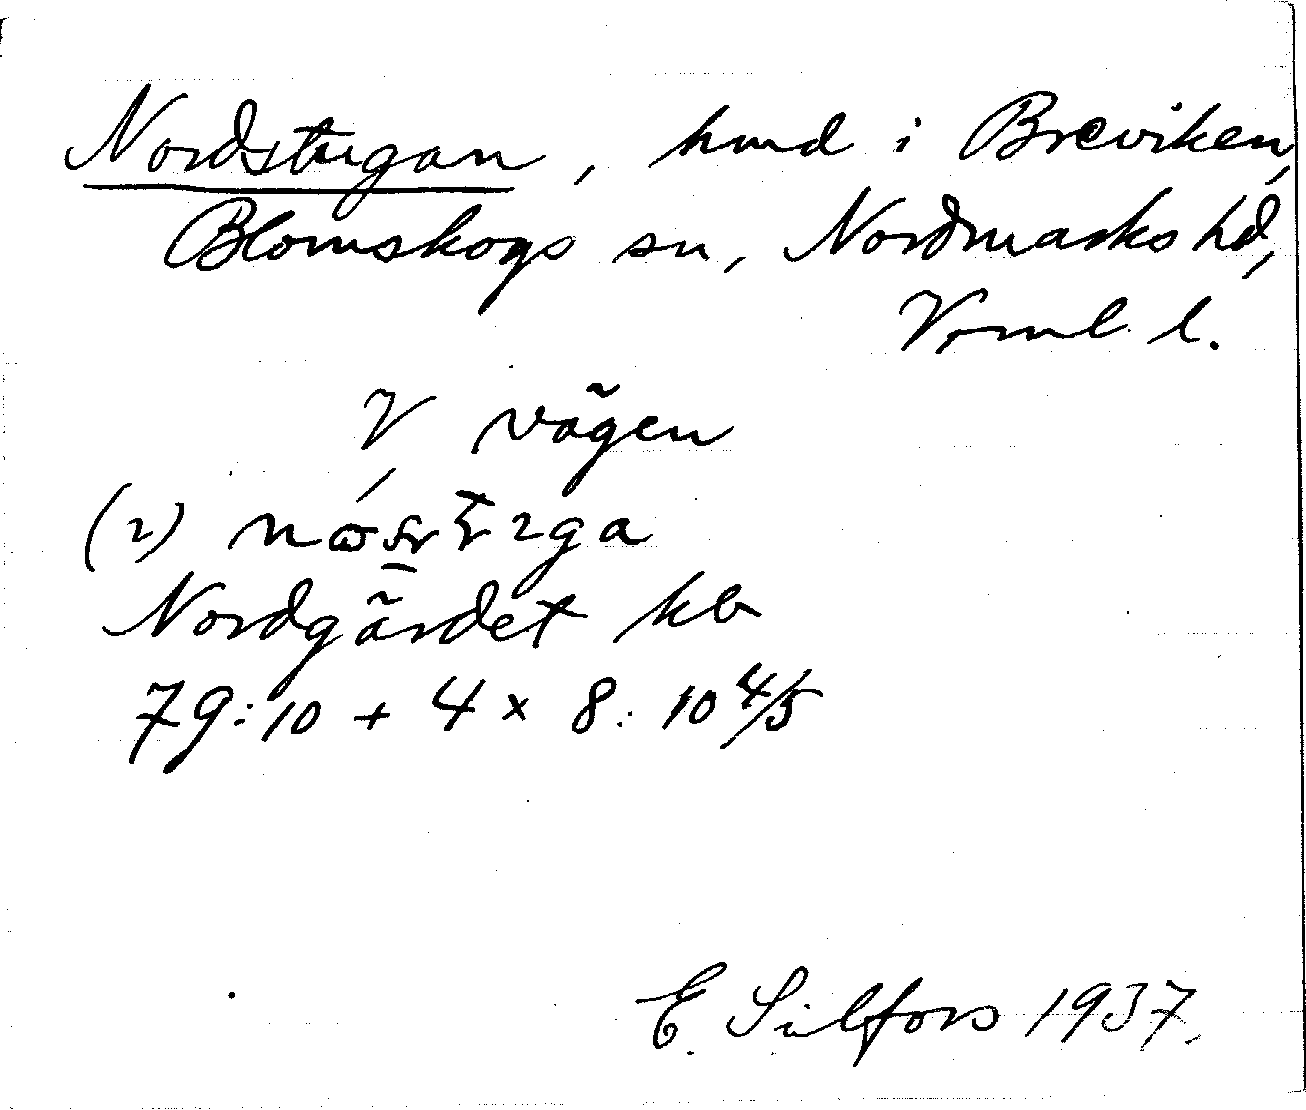 Nordstugan, hmd i Breviken,
Blomskogs sn, Nordmarks hd,
Vrml l.
V vägen
(2)
Nordgärdet kb
79:10 + 4 x 8:10 4/5
E. Silfors 1937.